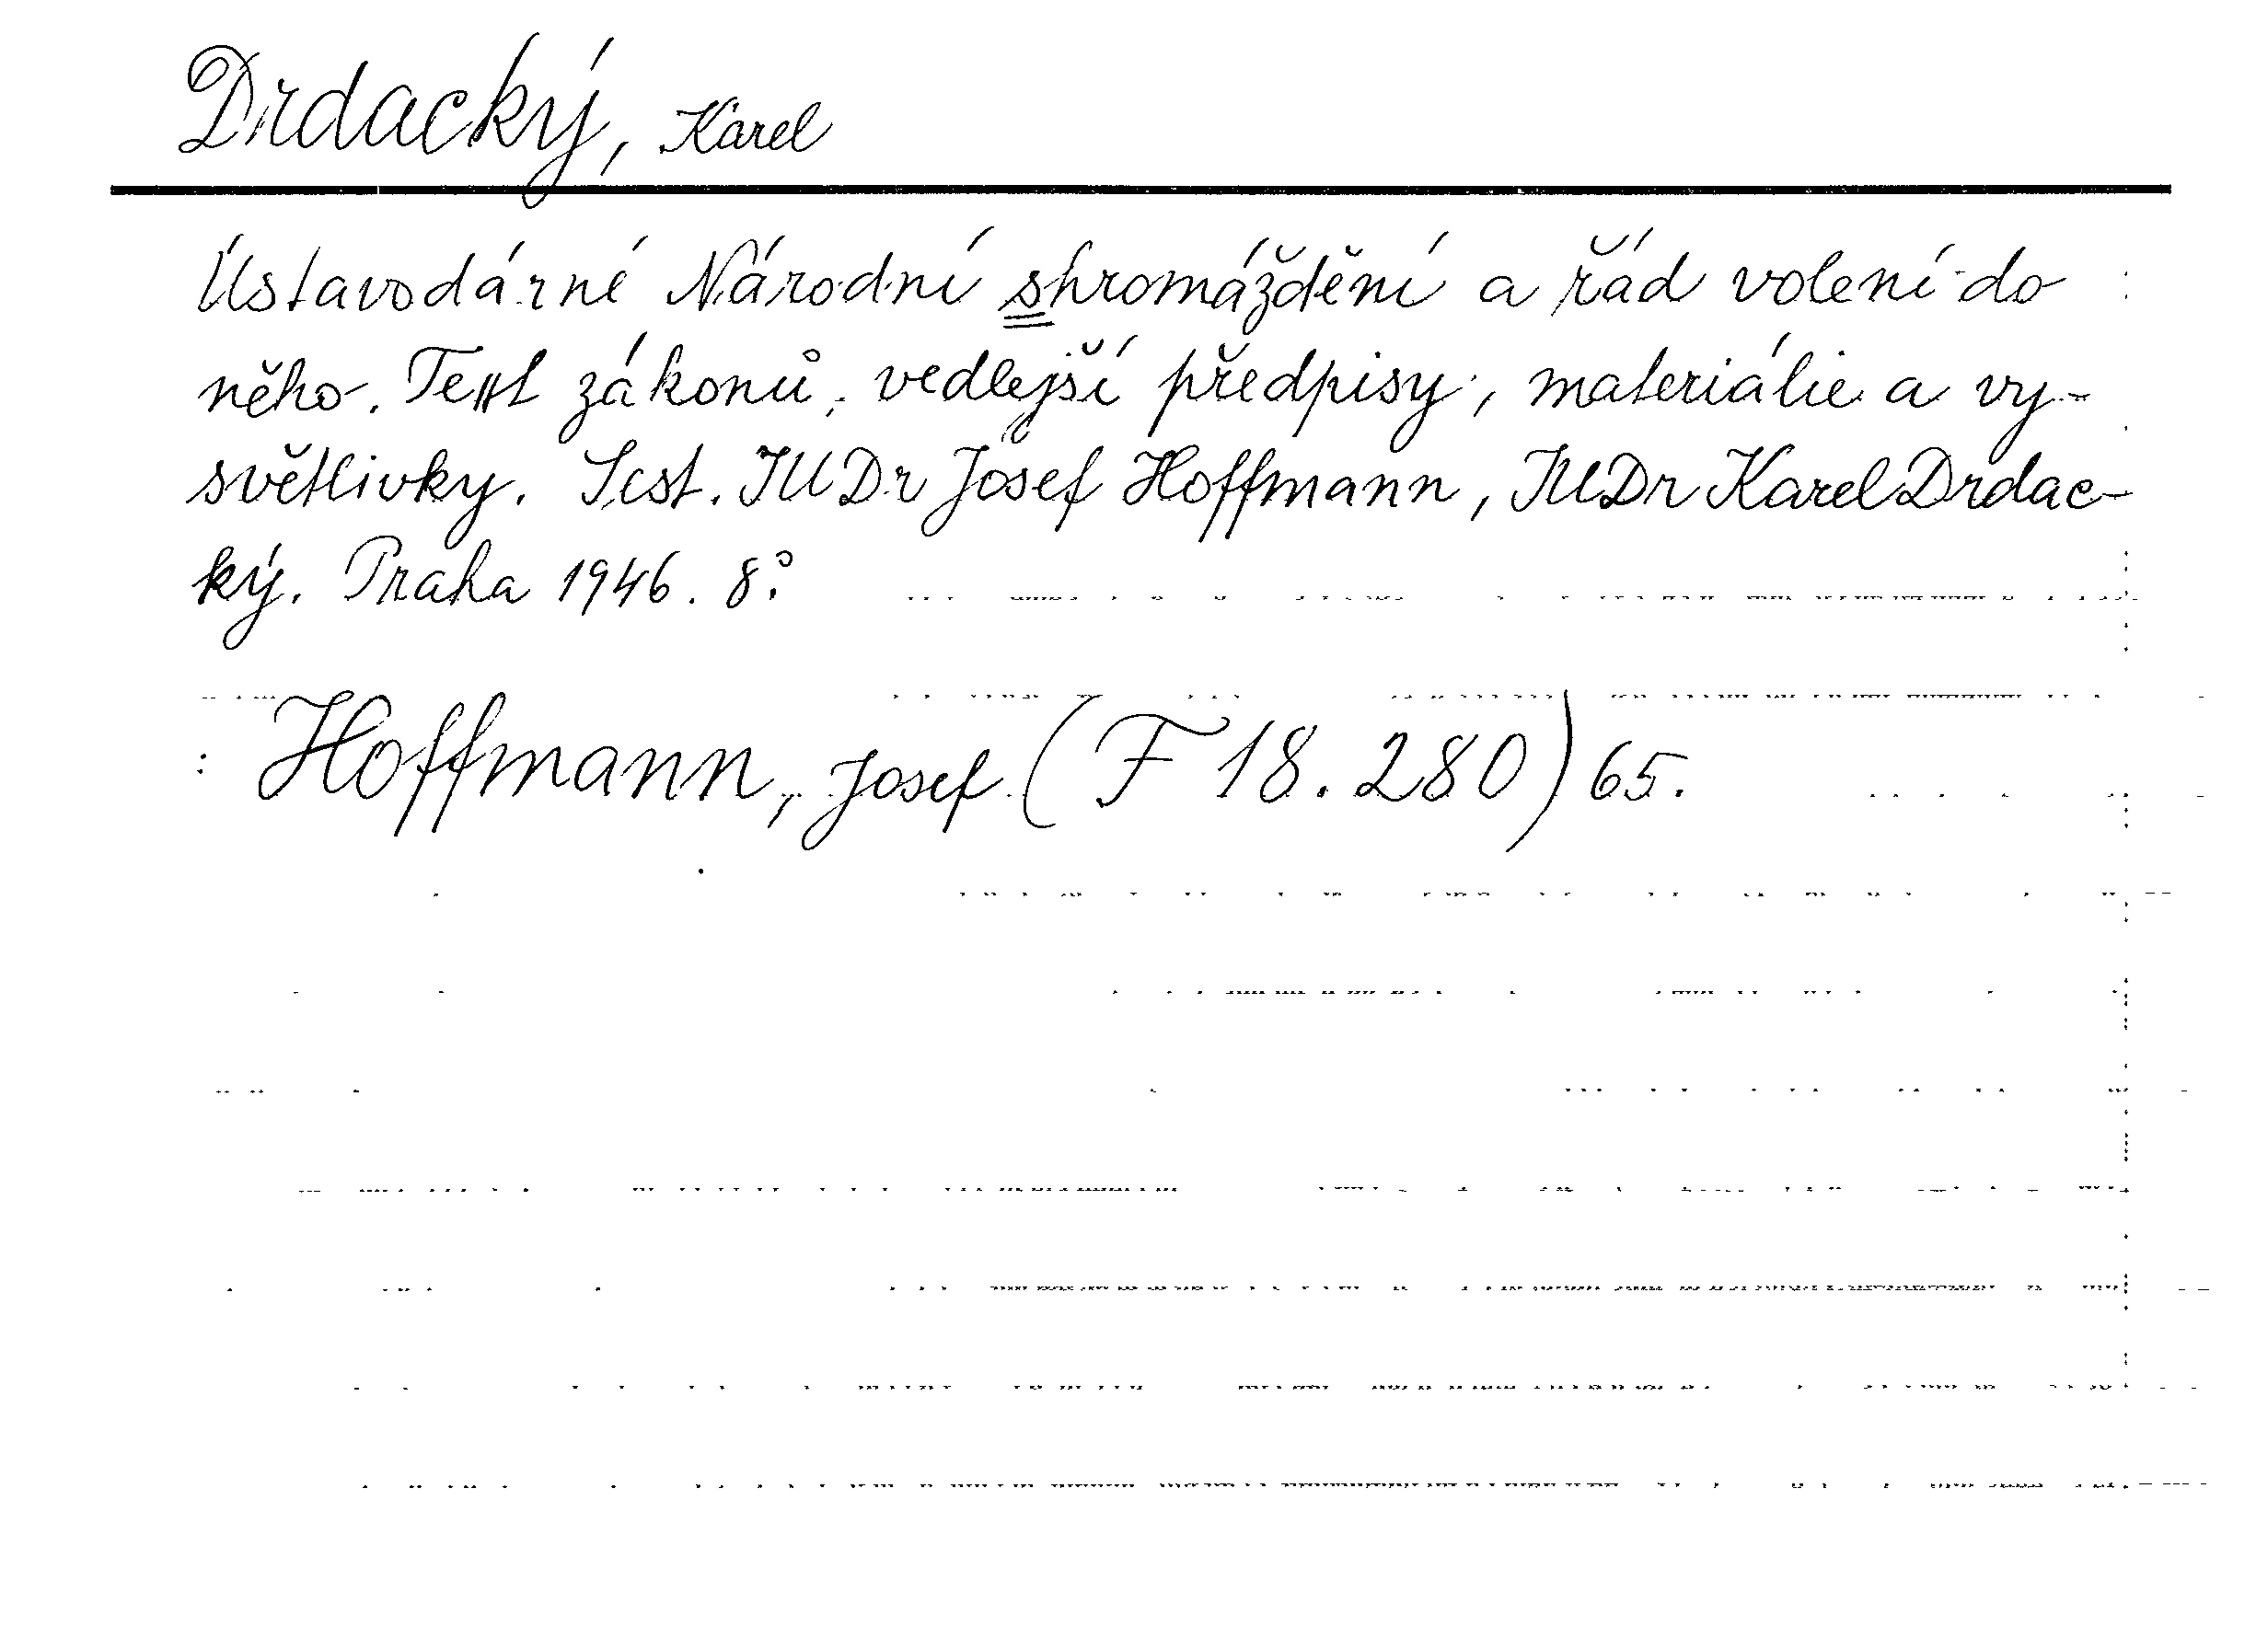 Drdacký, Karel
Ústavodárné Národní shromáždění a řád volení do
něho. Text zákonů, vedlejší předpisy, materiálie a vy-
světlivky. Sest. JUDr Josef Hoffmann, JUDr Karel Drdac-
ký. Praha 1946. 8°.
Hoffmann, Josef (F 18.280) 65.